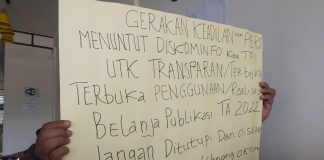 GERAKAN KEADILAN PERS
MENUNTUT DISKOMINFO Kota TPI
UTK TRANSPARAN/Terbuka
TERBUKA PENGGUNAAN/Realisasi
Belanja Publikasi TA 2022
Jangan Ditutupi Dan di